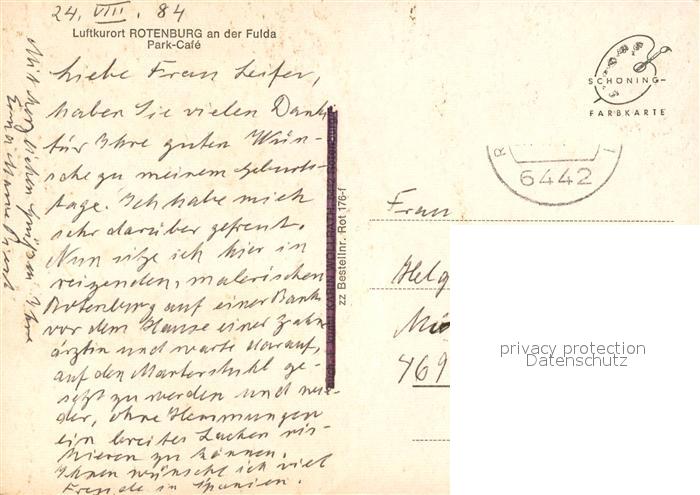 24. VIII. 84
Luftkurort ROTENBURG an der Fulda
Park-Café
Liebe Frau Leifer,
haben Sie vielen Dank
für Ihre guten Wün-
sche zu meinem Geburts-
tage. Ich habe mich
sehr darüber gefreut.
Nun sitze ich hier im
reizenden, malerischen
Rotenburg auf einer Bank
vor dem Hause einer Zahn-
ärztin und warte darauf,
auf den Marterstuhl ge-
setzt zu werden und wie-
der, ohne Hemmungen
ein breites Lachen ris-
kieren zu können.
Ihnen wünscht ich viel
Freude in Spanien.
Mit herzlichen Grüßen Ihre
zz Bestellnr. Rot 176-f
SCHÖNING-
FARBKARTE
6442
Frau
Helg
469
privacy protection
Datenschutz